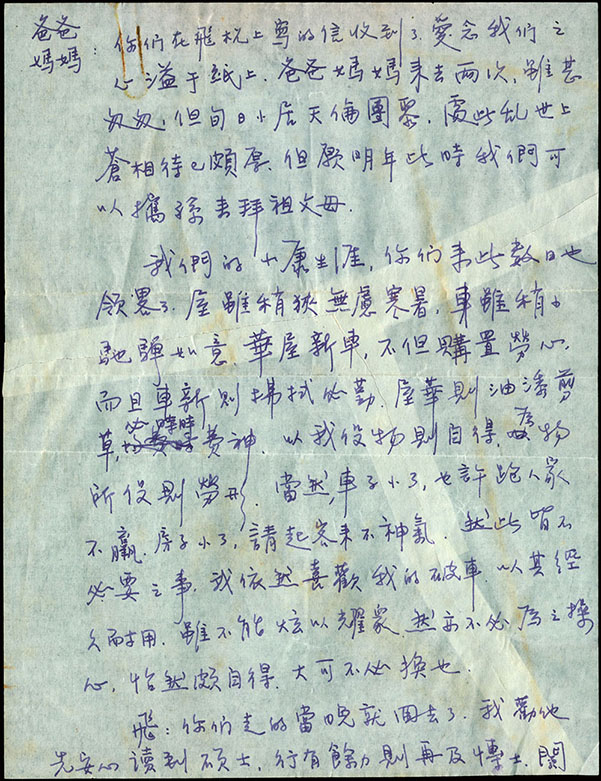 爸爸
媽媽：你們在飛机上寫的信收到了.愛念我們之
心溢于紙上.爸爸媽媽来去兩次,雖甚
匆匆,但旬日小居天倫團聚,處此乱世上
蒼相待已頗厚.但願明年此時我們可
以携孫去拜祖父母.
我們的小康生涯,你們来此数日也
領畧了.屋雖稍狹無慮寒暑,車雖稍小
馳騁如意.華屋新車,不但購置勞心.
而且車新則掃拭必勤.屋華則油漆剪
草,必時時費神.以我役物則自得,為物
所役則勞形.當然,車子小了,也許跑人家
不贏.房子小了,請起客来不神氣.然此皆不
必要之事.我依然喜歡我的破車.以其經
久而耐用.雖不能炫以耀衆,然亦不必為之操
心,怡然頗自得.大可不必換也.
飛：你們走的當晚就回去了.我勸他
先安心讀到碩士,行有餘力則再及博士.關